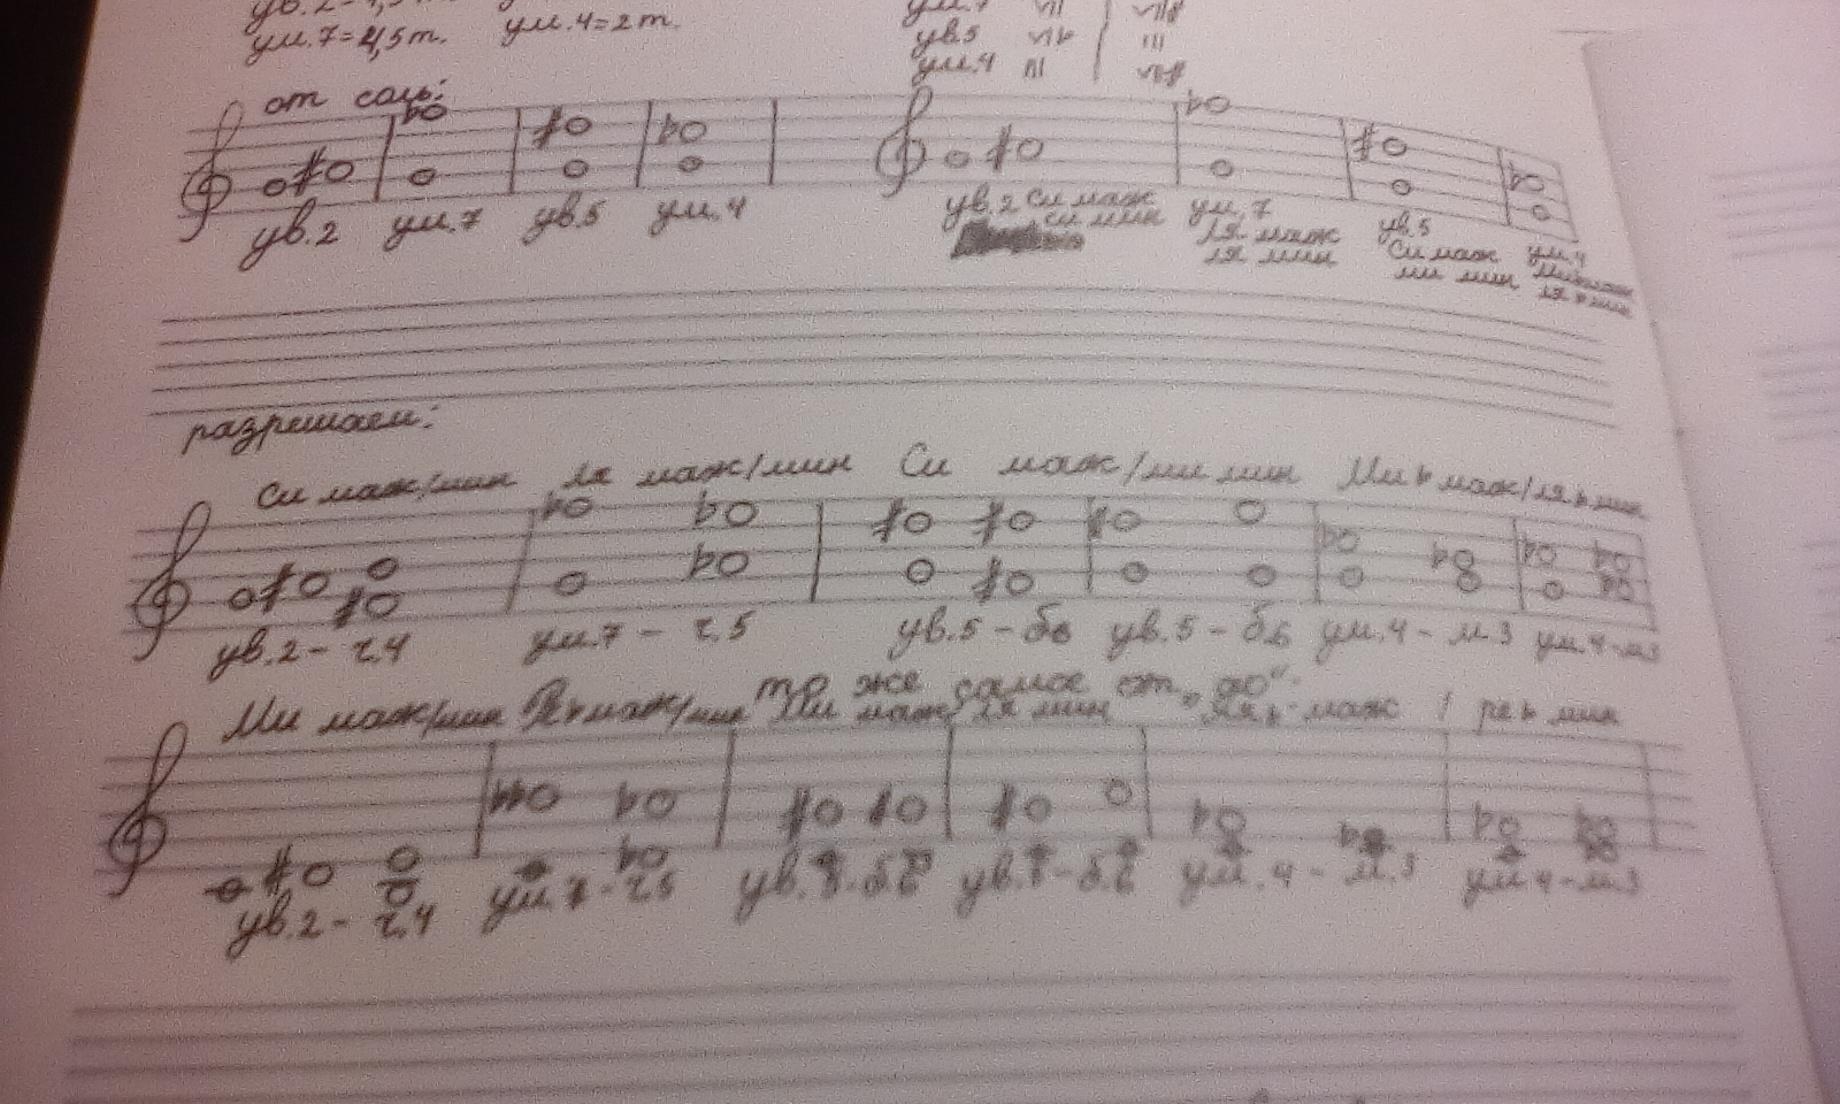 ув.2=1,5т.
ум.7=4,5т. ум.4=2т.
ум.7 VII VII#
ув.5 VI♭ III
ум.4 III VII#
от соль:
ув.2 ум.7 ув.5 ум.4
ув.2 Си маж ум.7 ув.5 ум.4
си мин Ля маж Си маж Ми♭маж
ля мин ми мин ля♭мин
разрешаем:
Си маж/мин Ля маж/мин Си маж/ми мин Ми♭маж/ля♭мин
ув.2 - ч.4 ум.7 - ч.5 ув.5 - б6 ув.5 - б.6 ум.4 - м.3 ум.4-м3
то же самое от „до“.
Ми маж/мин Ре♭маж/мин Ми маж/ля мин Ля♭маж / ре♭мин
ув.2 - ч.4 ум.7 - ч.5 ув.5-б.6 ув.5-б.6 ум.4 - м.3 ум4-м.3